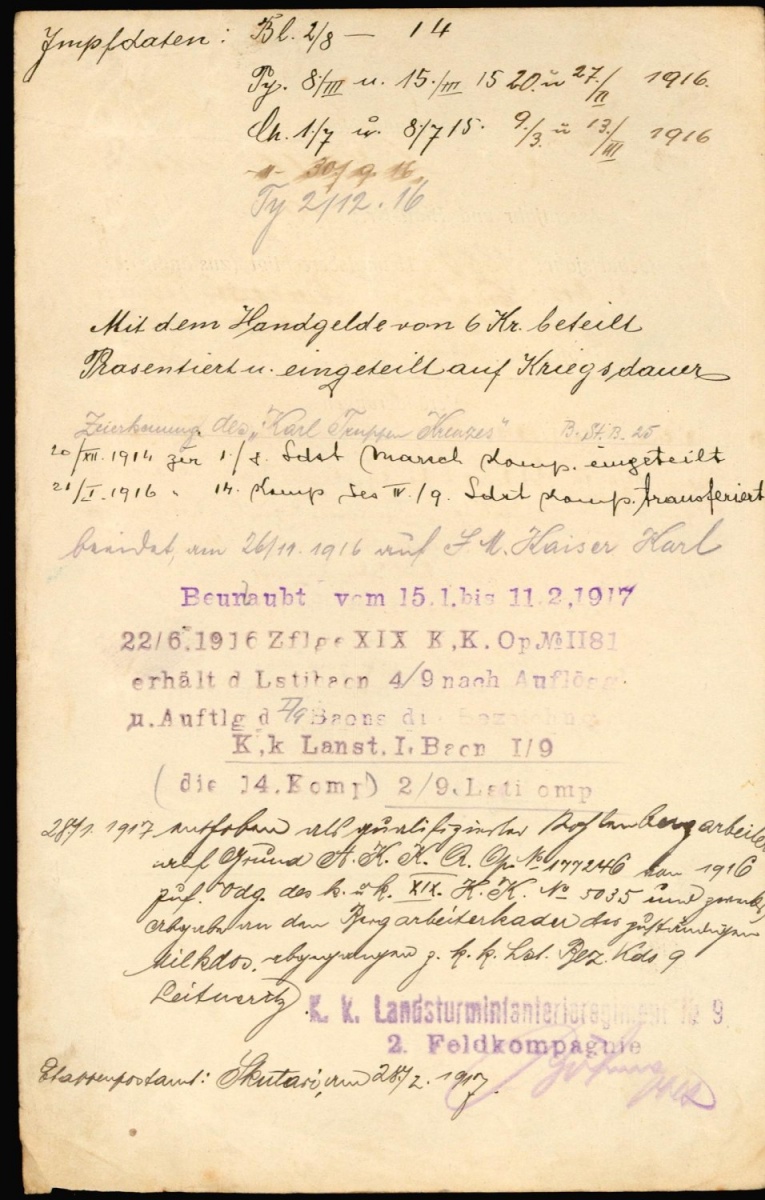 Impfdaten: Bl. 2/8 — 14
Ty. 8./III u. 15./III 15 20. u 27./II 1916.
Ch. 1/7 u. 8/7 15. 9./3. u 13./III 1916
-"- 30/9. 16
Ty 2/12. 16
Mit dem Handgelde von 6 Kr. beteilt
Präsentiert u. eingeteilt auf Kriegsdauer
des "Karl Truppen Kreuzes" B. St. B. 25
20/XII. 1914 zur 1/8. Ldst Marsch Komp. eingeteilt
21/I. 1916 " 14. Komp des IV./9. Ldst Komp. transferiert
beeidet, am 26/11. 1916 auf S. M. Kaiser Karl
Beurlaubt vom 15.1.bis 11.2.1917
22/6.1916 Zflge XIX K,K.Op.№1181
erhält d Lstibaon 4/9 nach Auflösg.
u.Auftlg d Baons die Bezeichnung
K,k Lanst.I.Baon I/9
(die 14.Komp) 2/9.Lstikomp
28/1. 1917 enthoben als qualifizierter Kohlenbergarbeiter
auf Grund A. K. K. Q. Op. № 177246 von 1916
zuf. Vdg. des k. u k. XIX. K. K. № 5035 und zwecks
Abgabe an den Bergarbeiterkader des zuständigen
Milkdos. abgegangen z. k. k. Lst. Bez. Kdo 9
Leitmeritz.
K. k. Landsturminfanterieregiment № 9
2. Feldkompagnie
Etappenpostamt: Skutari, am 28/1. 1917.